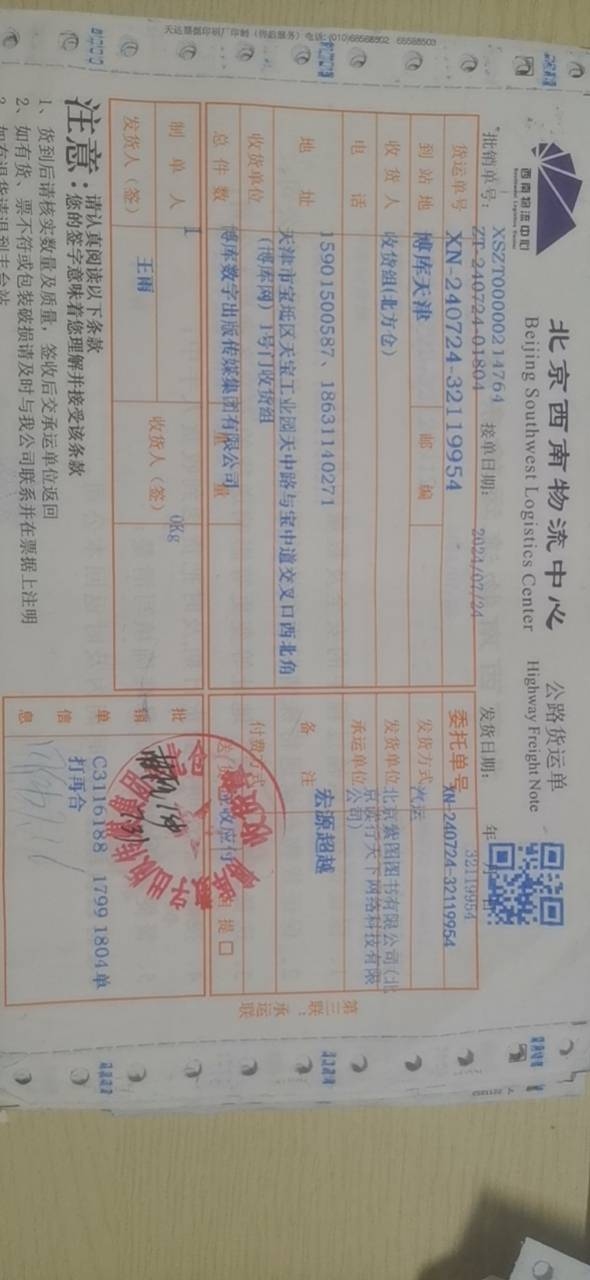 天达票据印刷厂印制（售后服务）电话：(010)68568502 68568503
西南物流中心
北京西南物流中心
Beijing Southwest Logistics Center
公路货运单
Highway Freight Note
批销单号： XSZT00000214764
ZT-240724-01804
接单日期： 2024/07/24
发货日期： 年 月 日
32119954
货运单号 XN-240724-32119954
委托单号 XN-240724-32119954
到站地 博库天津 邮编
发货方式 汽运
收货人 收货组(北方仓)
发货单位 北京紫图图书有限公司(北
京读行天下网络科技有限
公司)
电话 15901500587、18631140271
承运单位
地址 天津市宝坻区天宝工业园天中路与宝中道交叉口西北角
(博库网) 1号门收货组
备注 宏源超越
收货单位 博库数字出版传媒集团有限公司
付费方式
总件数 1
量 0Kg
提 口
制单人 王雨
收货人（签）
发货人（签）
批销单信息
C3116188 1799 1804单
打再合
第三联：承运联
注意：请认真阅读以下条款
您的签字意味着您理解并接受该条款
1、货到后请核实数量及质量，签收后交承运单位返回
2、如有货、票不符或包装破损请及时与我公司联系并在票据上注明